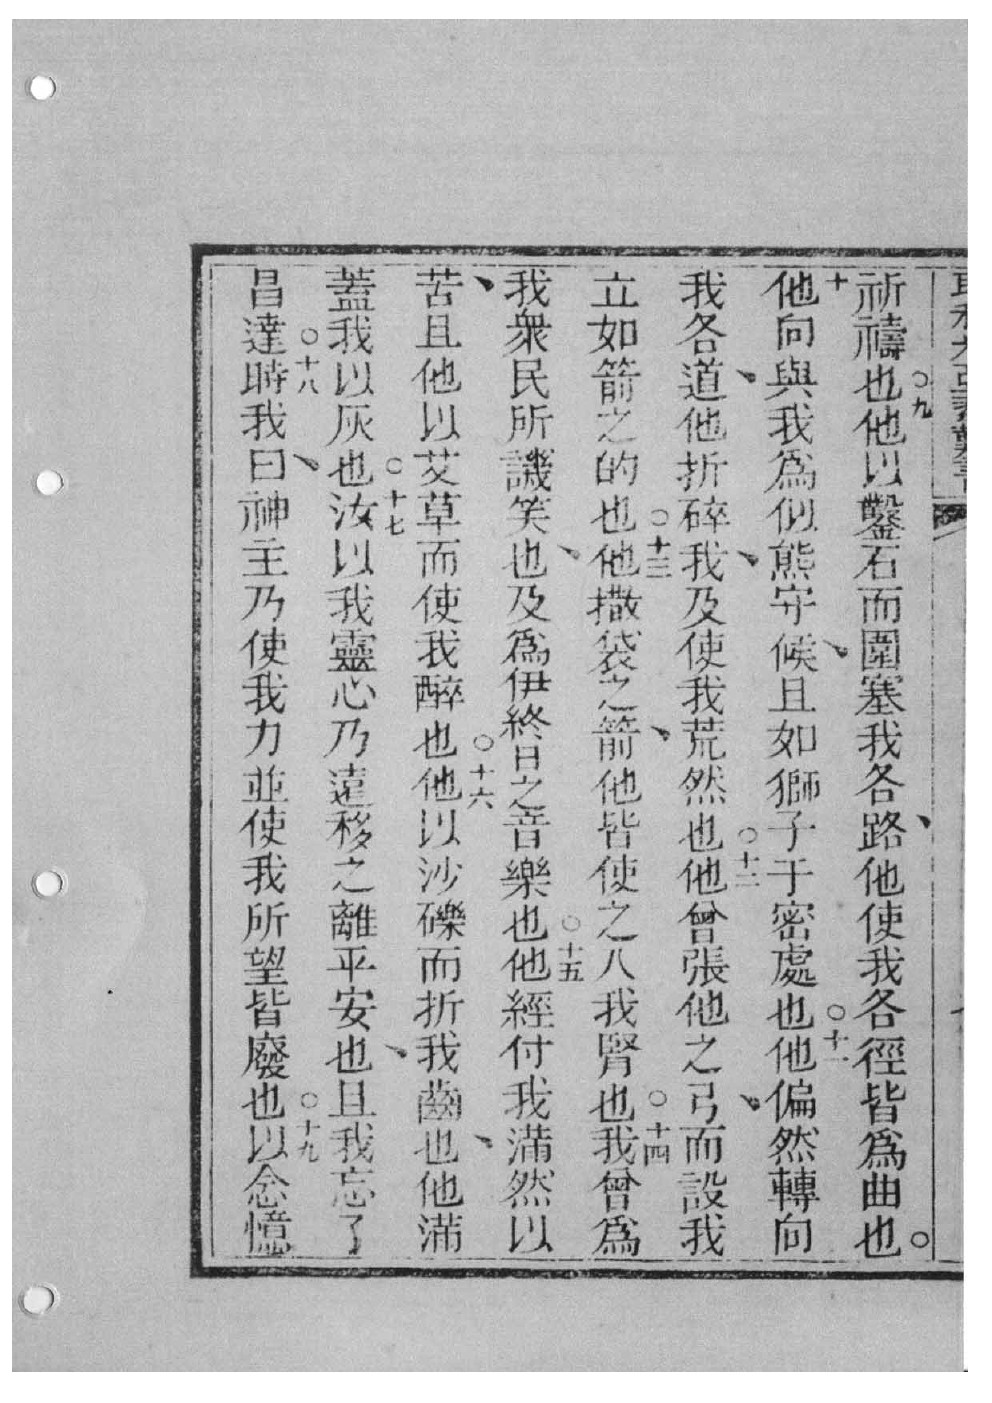 祈禱也○九他以鑿石而圍塞我各路、他使我各徑皆爲曲也○
十他向與我爲似熊守候、且如獅子于密處也○十一他偏然轉向
我各道、他折碎我、及使我荒然也○十二他曾張他之弓、而設我
立如箭之的也○十三他撒袋之箭、他皆使之入我腎也○十四我曾爲
我衆民所譏笑也、及爲伊終日之音樂也○十五他經付我滿然以
苦、且他以艾草而使我醉也○十六他以沙礫而折我齒也、他滿
蓋我以灰也○十七汝以我靈心乃遠移之離平安也、且我忘了
昌達時○十八我曰、神主乃使我力並使我所望皆廢也○十九以念憶